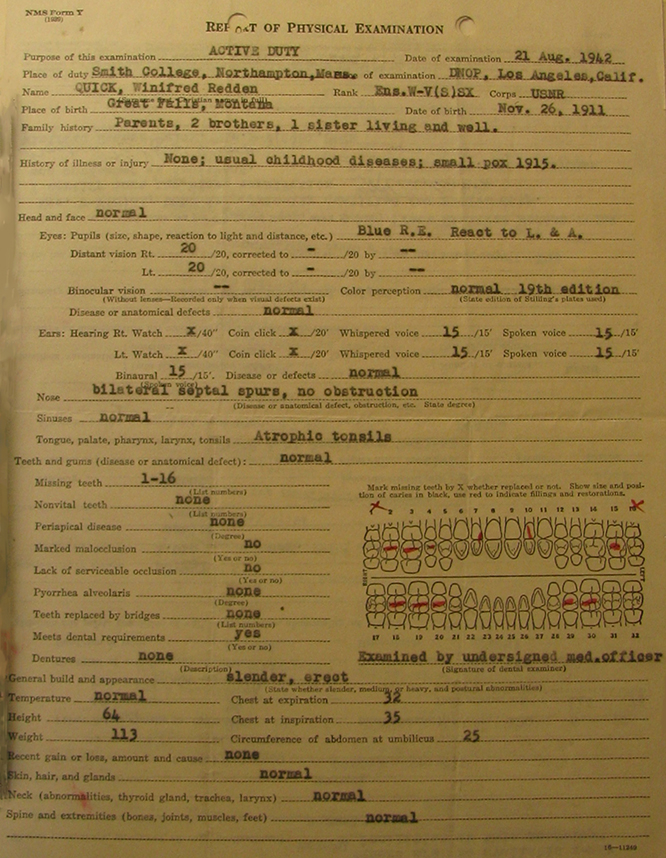 NMS Form Y
(1939)
REPORT OF PHYSICAL EXAMINATION
Purpose of this examination ACTIVE DUTY Date of examination 21 Aug. 1942
Place of duty Smith College, Northampton,Mass. of examination DNOP, Los Angeles,Calif.
Name QUICK, Winifred Redden Rank Ens.W-V(S)SX Corps USNR
Place of birth Great Falls, Montana Date of birth Nov. 26, 1911
Family history Parents, 2 brothers, 1 sister living and well.
History of illness or injury None; usual childhood diseases; small pox 1915.
Head and face normal
Eyes: Pupils (size, shape, reaction to light and distance, etc.) Blue R.E. React to L. & A.
Distant vision Rt. 20/20, corrected to - /20 by --
Lt. 20/20, corrected to - /20 by --
Binocular vision -- Color perception normal 19th edition
(Without lenses—Recorded only when visual defects exist) (State edition of Stilling's plates used)
Disease or anatomical defects normal
Ears: Hearing Rt. Watch X/40" Coin click X/20' Whispered voice 15/15' Spoken voice 15/15'
Lt. Watch X/40" Coin click X/20' Whispered voice 15/15' Spoken voice 15/15'
Binaural 15/15'. Disease or defects normal
(Spoken voice)
Nose bilateral septal spurs, no obstruction
(Disease or anatomical defect, obstruction, etc. State degree)
Sinuses normal
Tongue, palate, pharynx, larynx, tonsils Atrophic tonsils
Teeth and gums (disease or anatomical defect): normal
Missing teeth 1-16
(List numbers)
Nonvital teeth none
(List numbers)
Periapical disease none
(Degree)
Marked malocclusion no
(Yes or no)
Lack of serviceable occlusion no
(Yes or no)
Pyorrhea alveolaris none
(Degree)
Teeth replaced by bridges none
(List numbers)
Meets dental requirements yes
(Yes or no)
Dentures none
(Description)
Mark missing teeth by X whether replaced or not. Show size and posi-
tion of caries in black, use red to indicate fillings and restorations.
X 2 3 4 5 6 7 8 9 10 11 12 13 14 15 X
RIGHT LEFT
17 18 19 20 21 22 23 24 25 26 27 28 29 30 31 32
Examined by undersigned med.officer
(Signature of dental examiner)
General build and appearance slender, erect
(State whether slender, medium, or heavy, and postural abnormalities)
Temperature normal Chest at expiration 32
Height 64 Chest at inspiration 35
Weight 113 Circumference of abdomen at umbilicus 25
Recent gain or loss, amount and cause none
Skin, hair, and glands normal
Neck (abnormalities, thyroid gland, trachea, larynx) normal
Spine and extremities (bones, joints, muscles, feet) normal